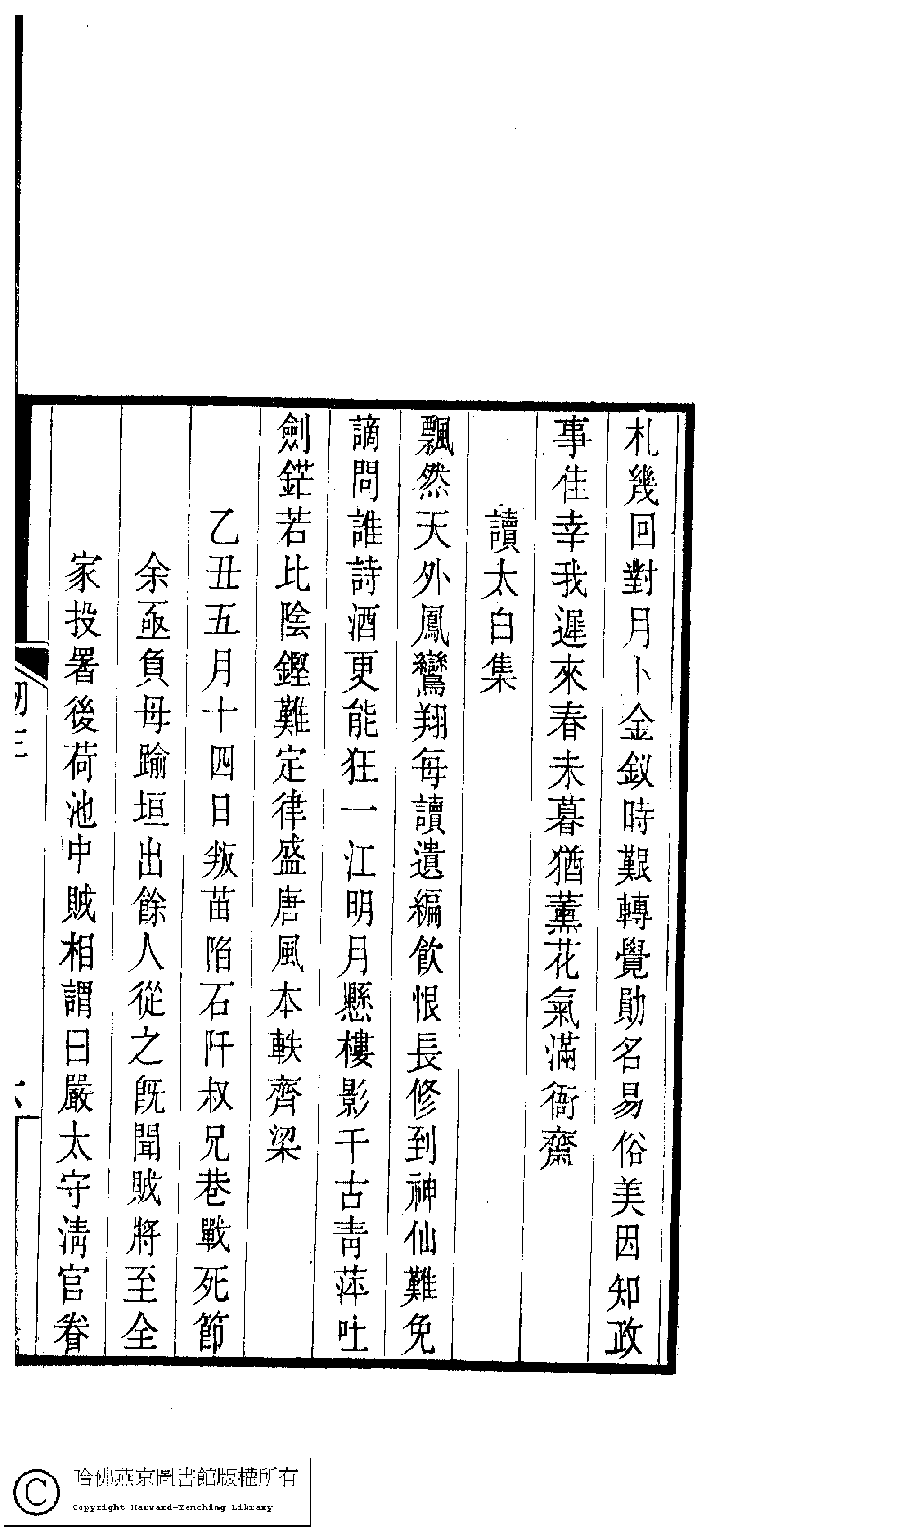 札幾回對月卜金釵時艱轉覺勛名易俗美因知政
事佳幸我遲來春未暮猶薰花氣滿衙齋
讀太白集
飄然天外鳳鸞翔每讀遺編飲恨長修到神仙難免
謫問誰詩酒更能狂一江明月懸樓影千古青萍吐
劍鋩若比陰鏗難定律盛唐風本軼齊梁
乙丑五月十四日叛苗陷石阡叔兄巷戰死節
余亟負母踰垣出餘人從之旣聞賊將至全
家投署後荷池中賊相謂曰嚴太守淸官眷
哈佛燕京圖書館版權所有
Copyright Harvard-Yenching Library